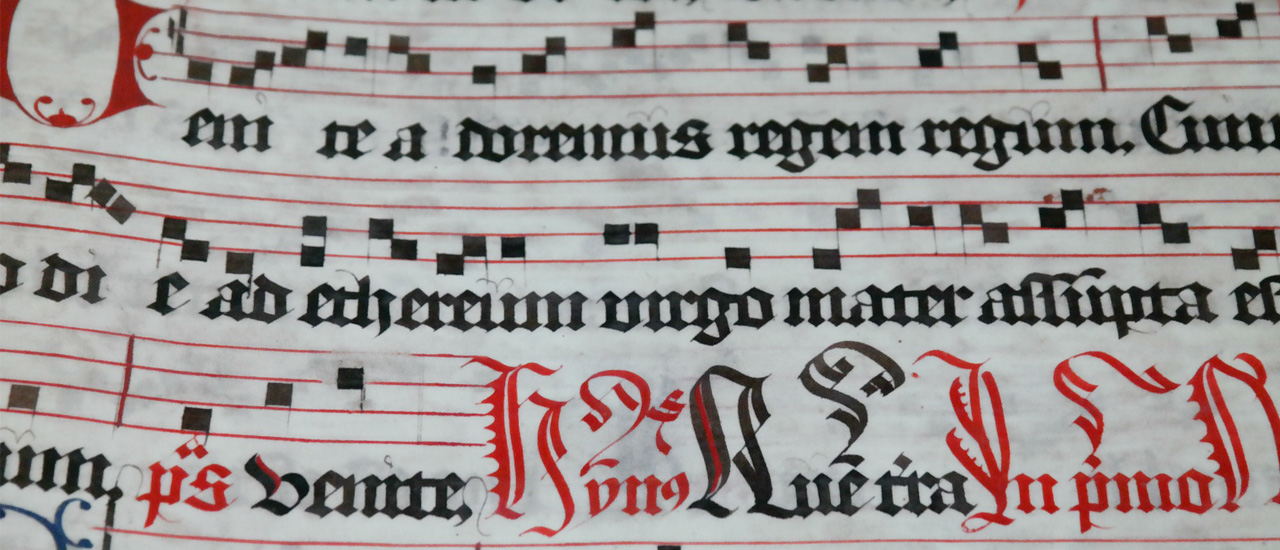 Ueni te a doremus regem regum. Cuiu
o di e ad ethereum uirgo mater assūpta es
um. p̄s Venite, Hỹnꝯ Quē t̄ra In p̍mo